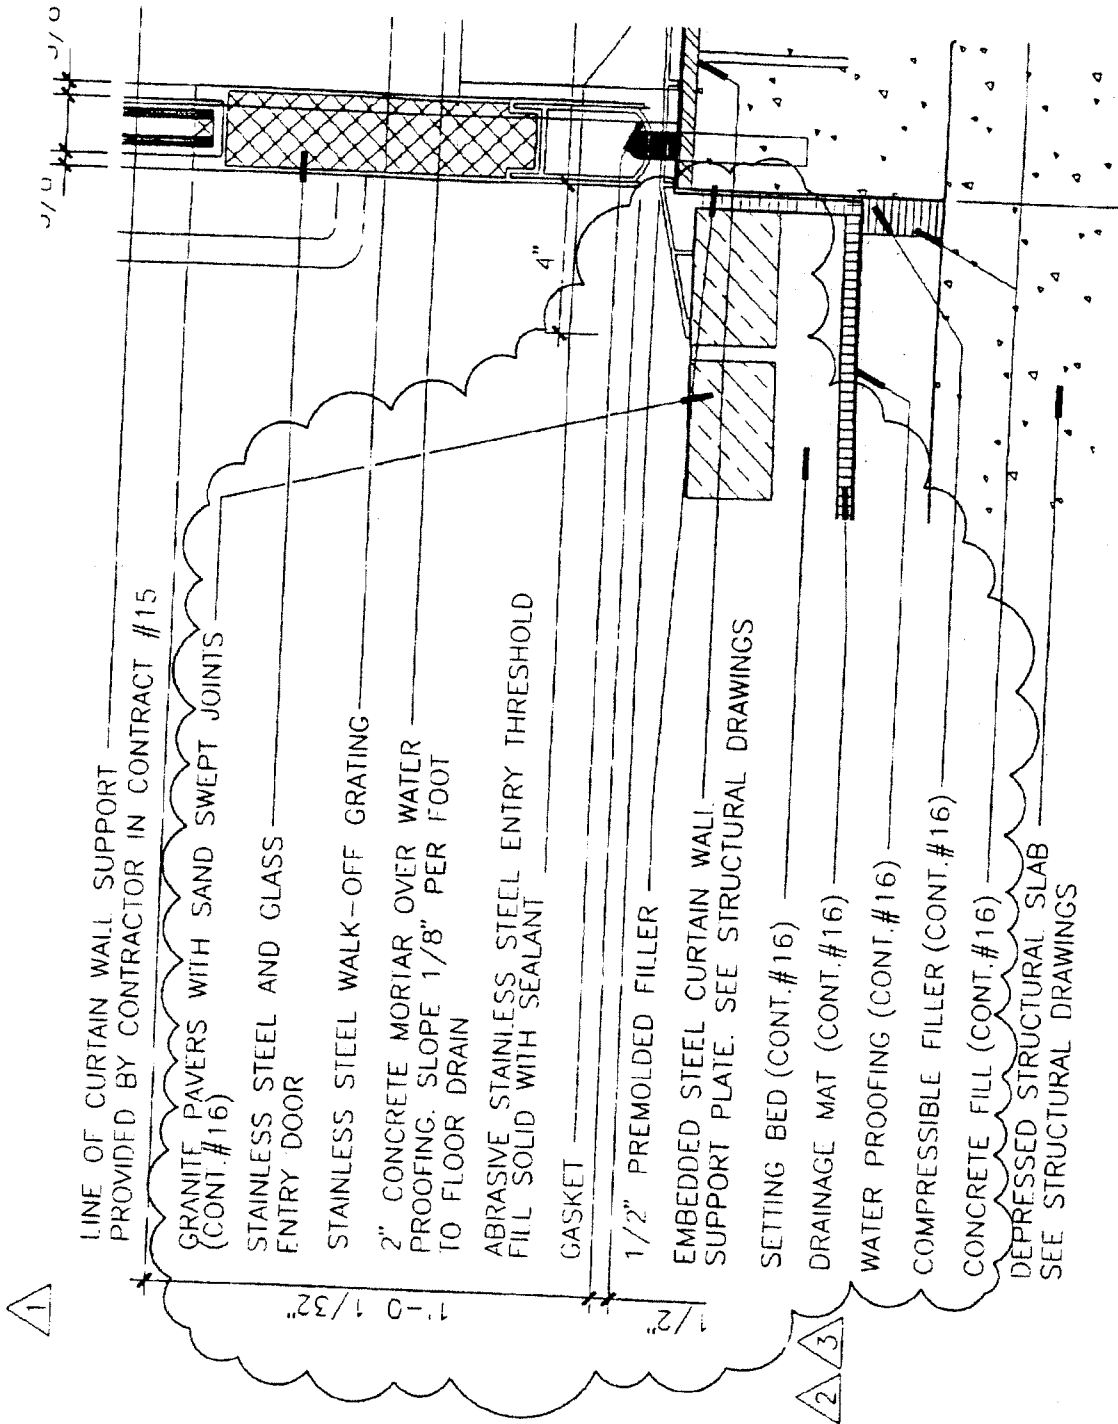 LINE OF CURTAIN WALL SUPPORT
PROVIDED BY CONTRACTOR IN CONTRACT #15
GRANITE PAVERS WITH SAND SWEPT JOINTS
(CONT.#16)
STAINLESS STEEL AND GLASS
ENTRY DOOR
STAINLESS STEEL WALK-OFF GRATING
2" CONCRETE MORTAR OVER WATER
PROOFING. SLOPE 1/8" PER FOOT
TO FLOOR DRAIN
ABRASIVE STAINLESS STEEL ENTRY THRESHOLD
FILL SOLID WITH SEALANT
GASKET
1/2" PREMOLDED FILLER
EMBEDDED STEEL CURTAIN WALL
SUPPORT PLATE. SEE STRUCTURAL DRAWINGS
SETTING BED (CONT.#16)
DRAINAGE MAT (CONT.#16)
WATER PROOFING (CONT.#16)
COMPRESSIBLE FILLER (CONT.#16)
CONCRETE FILL (CONT.#16)
DEPRESSED STRUCTURAL SLAB
SEE STRUCTURAL DRAWINGS
1'-0 1/32"
1/2"
4"
1
2
3